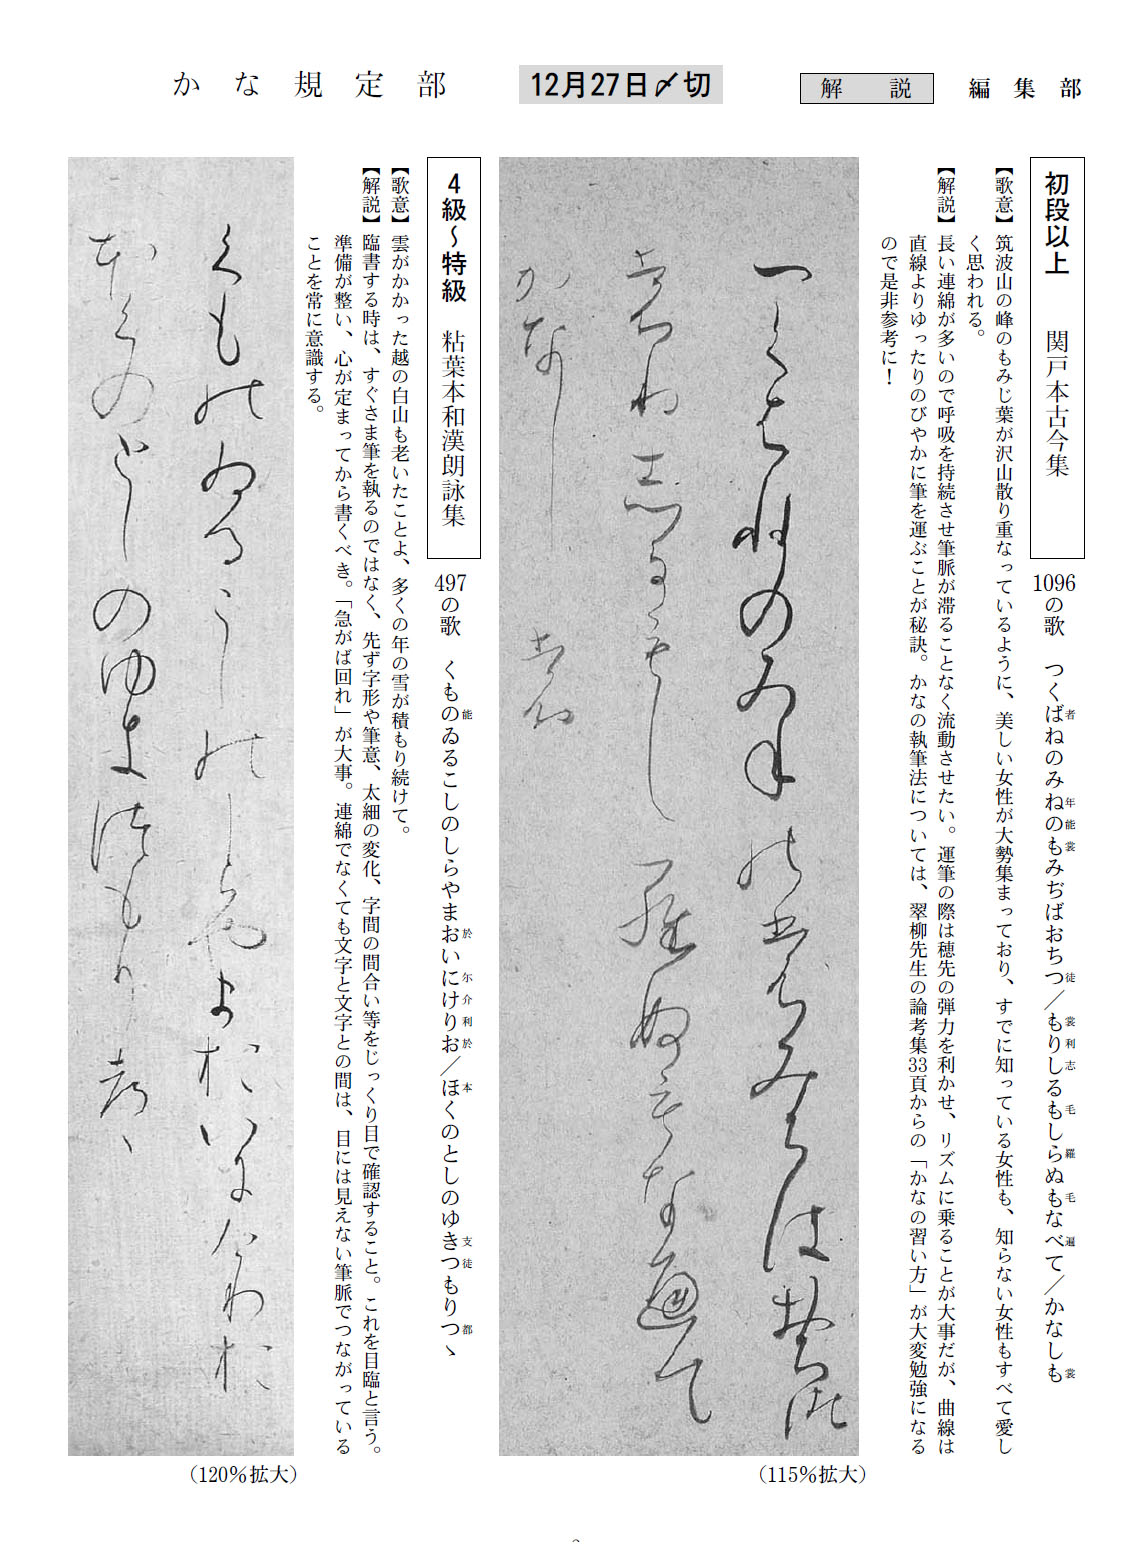 かな規定部
12月27日〆切
解説
編集部
初段以上　関戸本古今集
1096の歌　つくばねのみねのもみぢばおちつ／もりしるもしらぬもなべて／かなしも
者
年能裳
徒
裳利志
毛
羅
毛
遍
裳
【歌意】筑波山の峰のもみじ葉が沢山散り重なっているように、美しい女性が大勢集まっており、すでに知っている女性も、知らない女性もすべて愛し
く思われる。
【解説】長い連綿が多いので呼吸を持続させ筆脈が滞ることなく流動させたい。運筆の際は穂先の弾力を利かせ、リズムに乗ることが大事だが、曲線は
直線よりゆったりのびやかに筆を運ぶことが秘訣。かなの執筆法については、翠柳先生の論考集33頁からの「かなの習い方」が大変勉強になる
ので是非参考に！
（115％拡大）
4級～特級　粘葉本和漢朗詠集
497の歌　くものゐるこしのしらやまおいにけりお／ほくのとしのゆきつもりつゝ
能
於
尓介利於
本
支徒
都
【歌意】雲がかかった越の白山も老いたことよ、多くの年の雪が積もり続けて。
【解説】臨書する時は、すぐさま筆を執るのではなく、先ず字形や筆意、太細の変化、字間の間合い等をじっくり目で確認すること。これを目臨と言う。
準備が整い、心が定まってから書くべき。「急がば回れ」が大事。連綿でなくても文字と文字との間は、目には見えない筆脈でつながっている
ことを常に意識する。
（120％拡大）